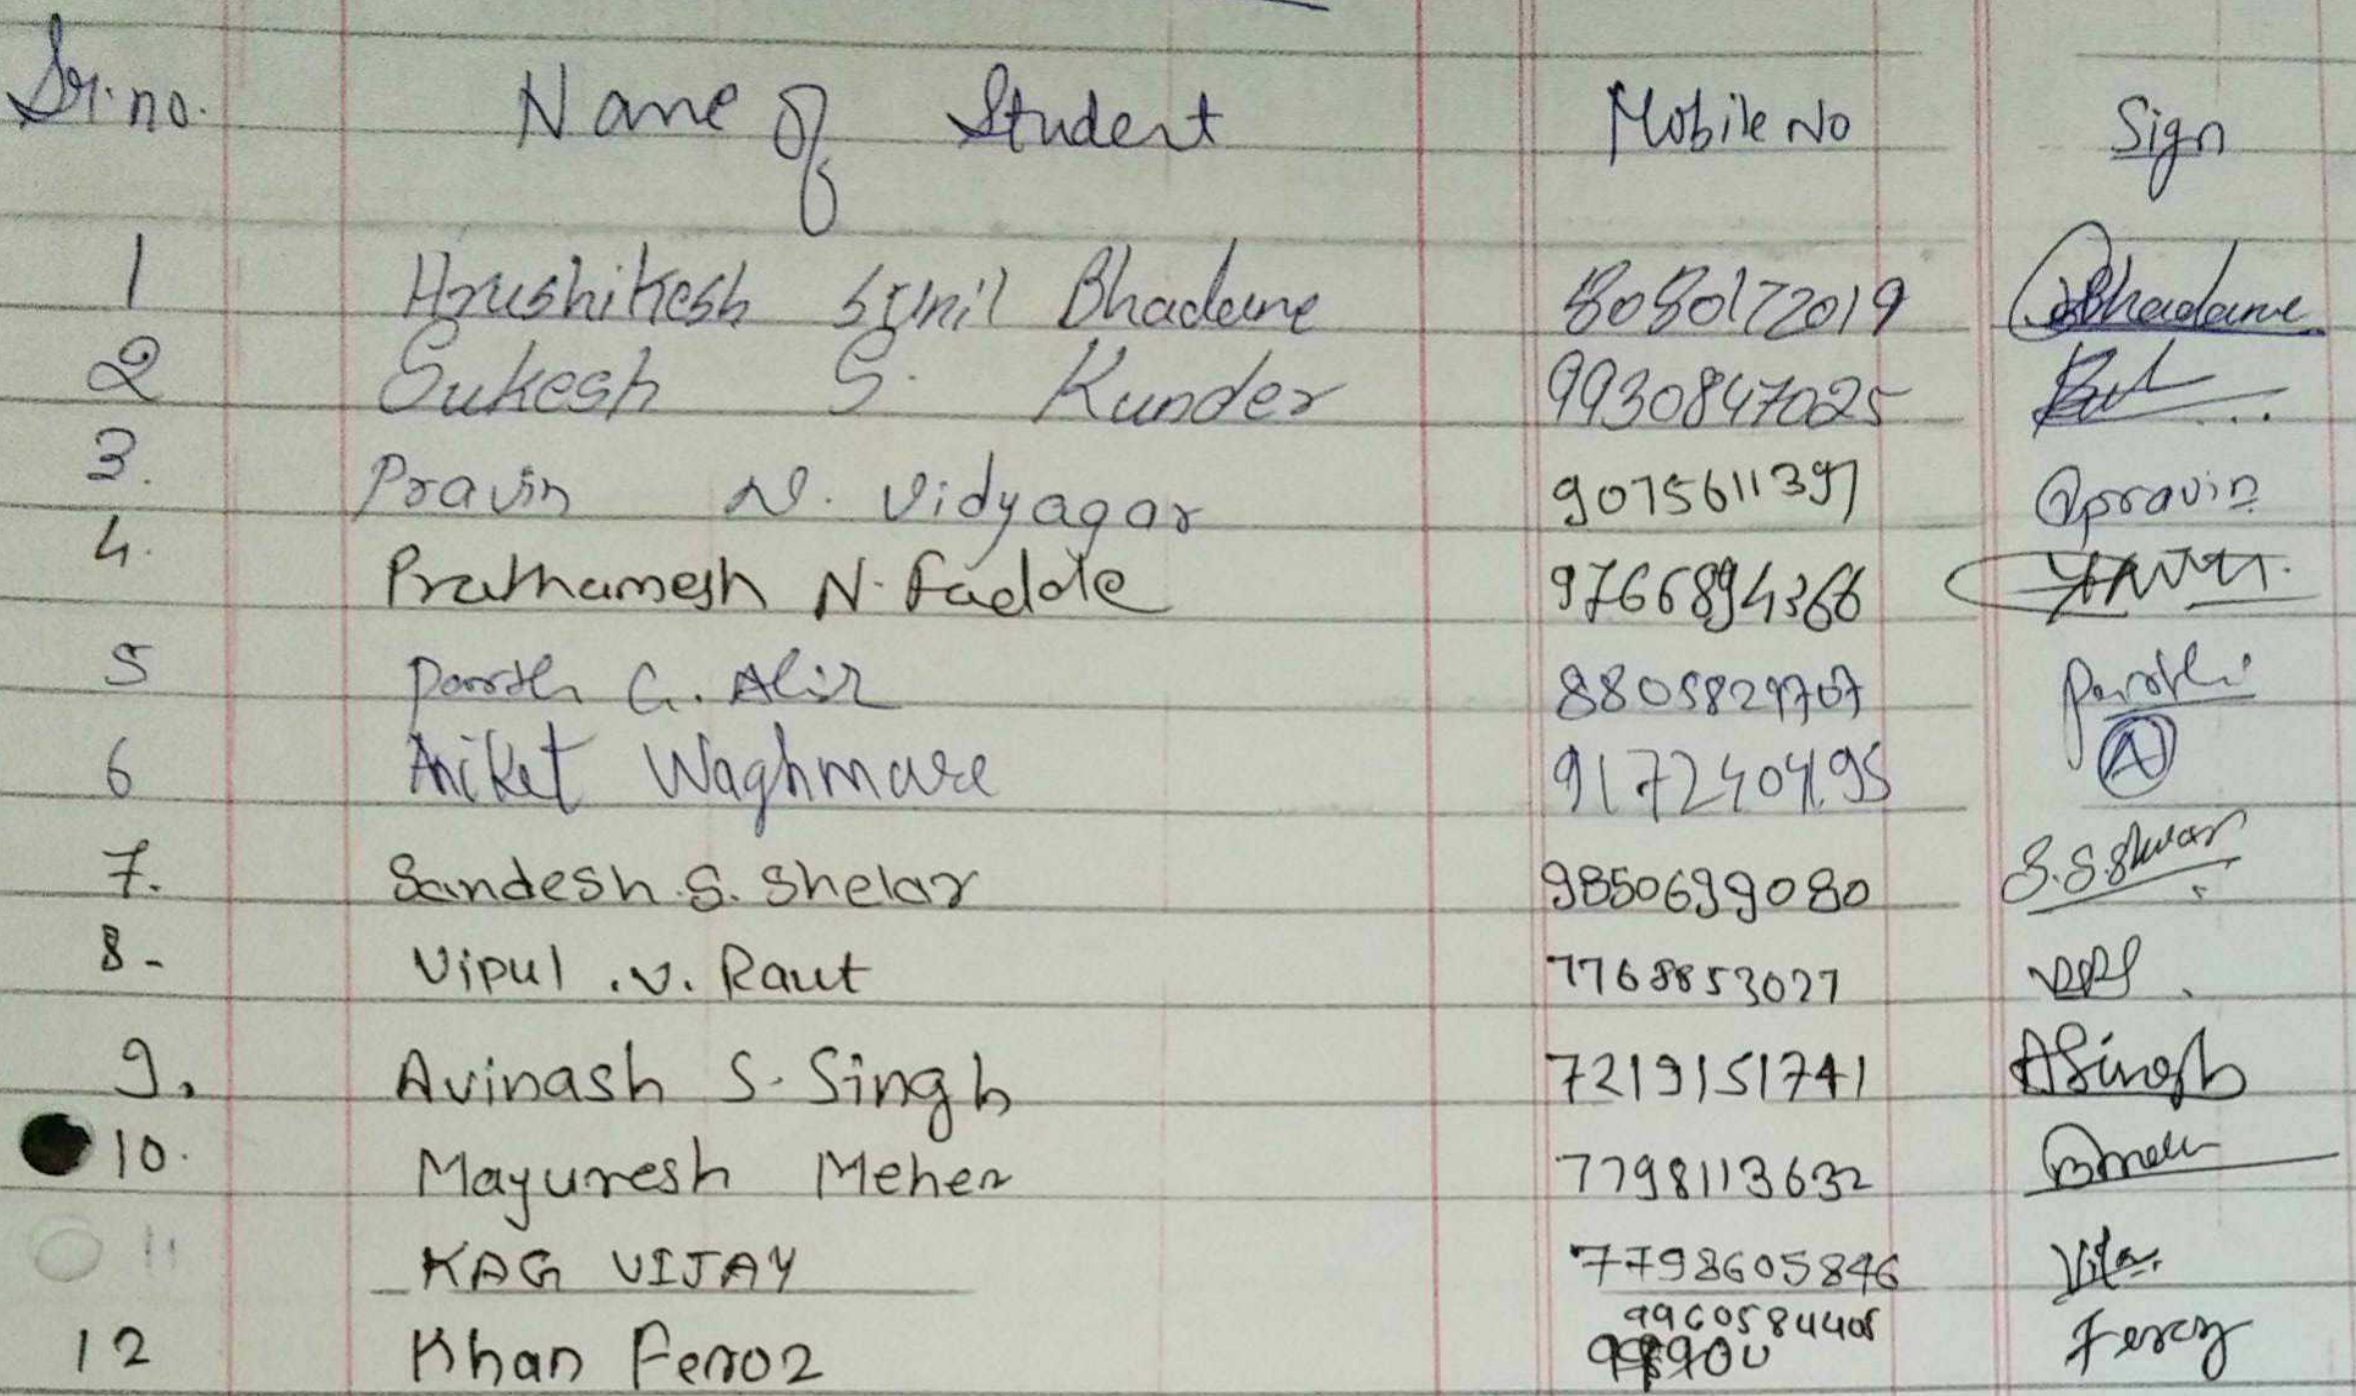 Sr.no. Name of Student Mobile No Sign
1 Hrushikesh Sunil Bhadane 8080172019 Bhadane
2 Sukesh S. Kunder 9930847025
3. Pravin N. Vidyagar 9075611397 pravin
4. Prathamesh N. Fadole 9766894366
5 Parth G. Alir 8805829707 Parth
6 Aniket Waghmare 9172404195 A
7. Sandesh S. Shelar 9850699080 S.S.
8- Vipul .V. Raut 7768853027
9. Avinash S. Singh 7219151741 ASingh
10. Mayuresh Meher 7798113632
11 KAG VIJAY 7798605846
9960584405
12 Khan Feroz Feroz